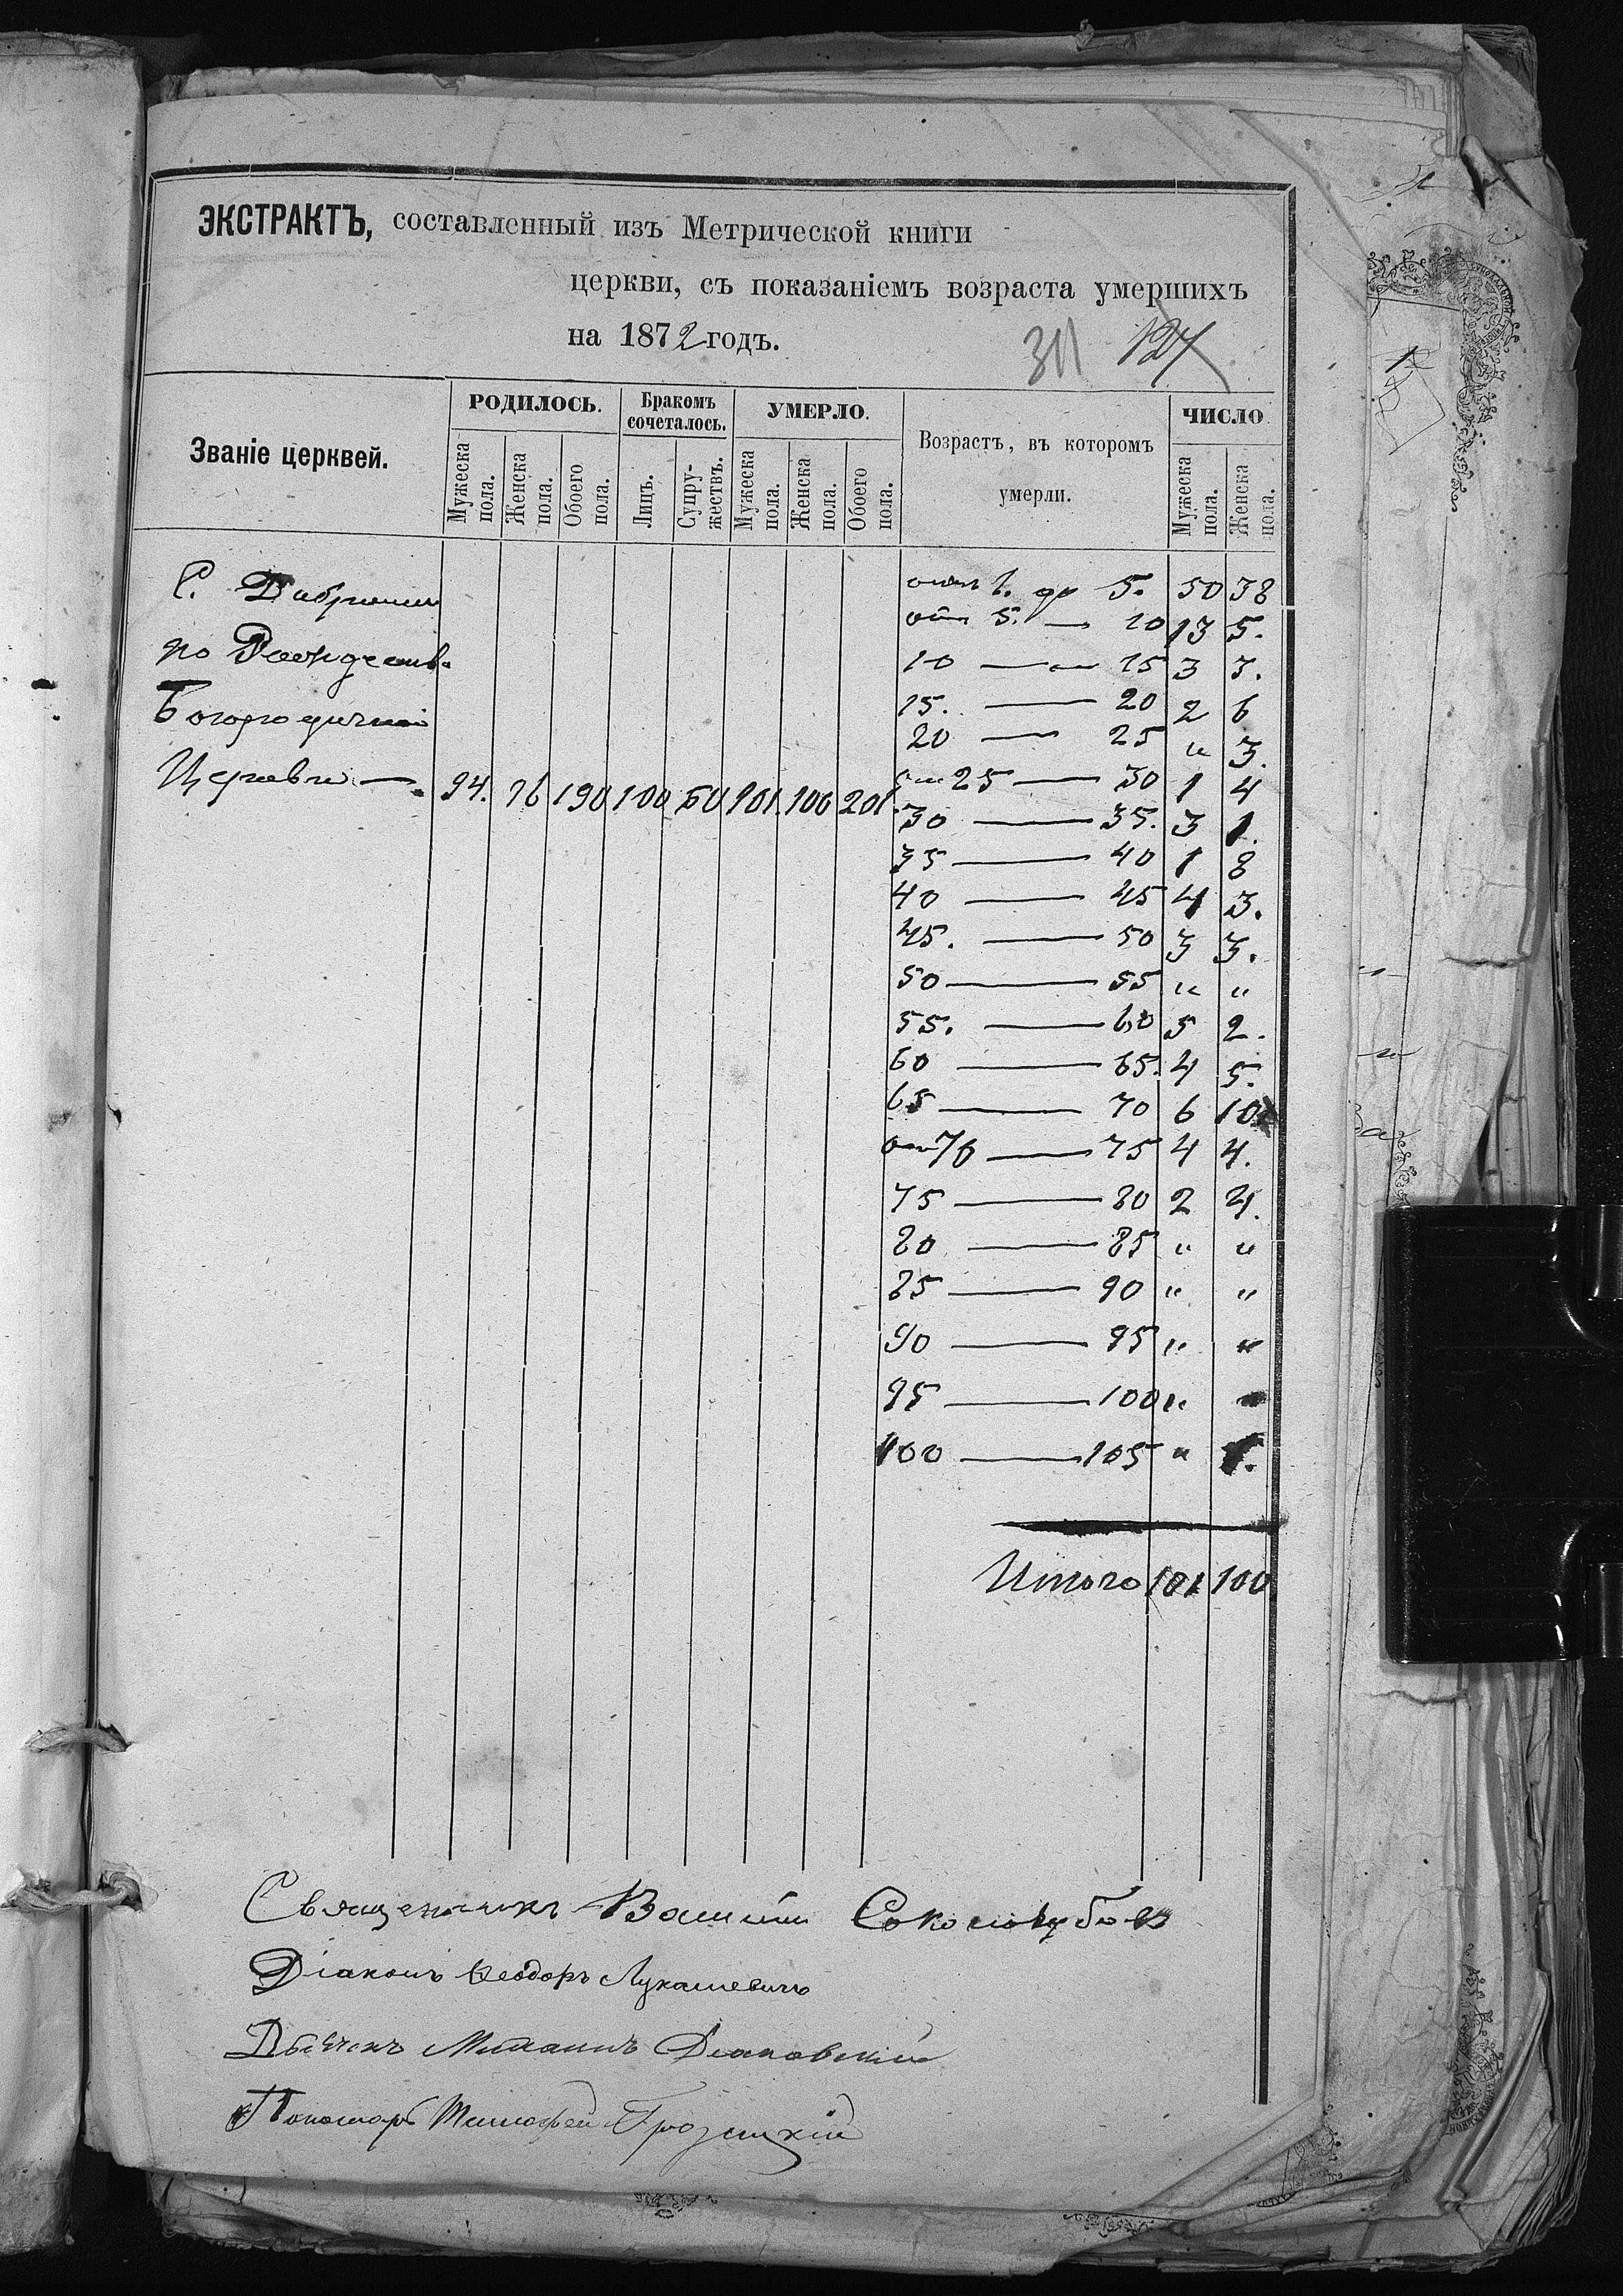 ЭКСТРАКТЪ, составленный изъ Метрической книги
церкви, съ показаніемъ возраста умершихъ
на 1872 годъ.
311 127
Званіе церквей.
РОДИЛОСЬ.
Бракомъ сочеталось.
УМЕРЛО.
Возрастъ, въ которомъ умерли.
ЧИСЛО
Мужеска пола.
Женска пола.
Обоего пола.
Лицъ.
Супружествъ.
Мужеска пола.
Женска пола.
Обоего пола.
Мужеска пола.
Женска пола.
С.
по Рождеств.
Богородичной
Церкви —. 94. 96 190 100 50 101. 100 201.
отъ 1. до 5. 50 38
отъ 5. — 10 13 5.
10 — 15 3 3.
15. — 20 2 6
20 — 25 " 3.
от 25 — 30 1 4
30 — 35. 3 1.
35 — 40 1 8
40 — 45 4 3.
45. — 50 3 3.
50 — 55 " "
55. — 60 5 2.
60 — 65. 4 5.
65 — 70 6 10
от 70 — 75 4 4.
75 — 80 2 4.
80 — 85 " "
85 — 90 " "
90 — 95 " "
95 — 100 "
100 — 105 " 1.
Итого 101 100
Священникъ
Діаконъ Ѳеодоръ Лукашевичъ
Дьячекъ Михаилъ
Пономарь Тимофей